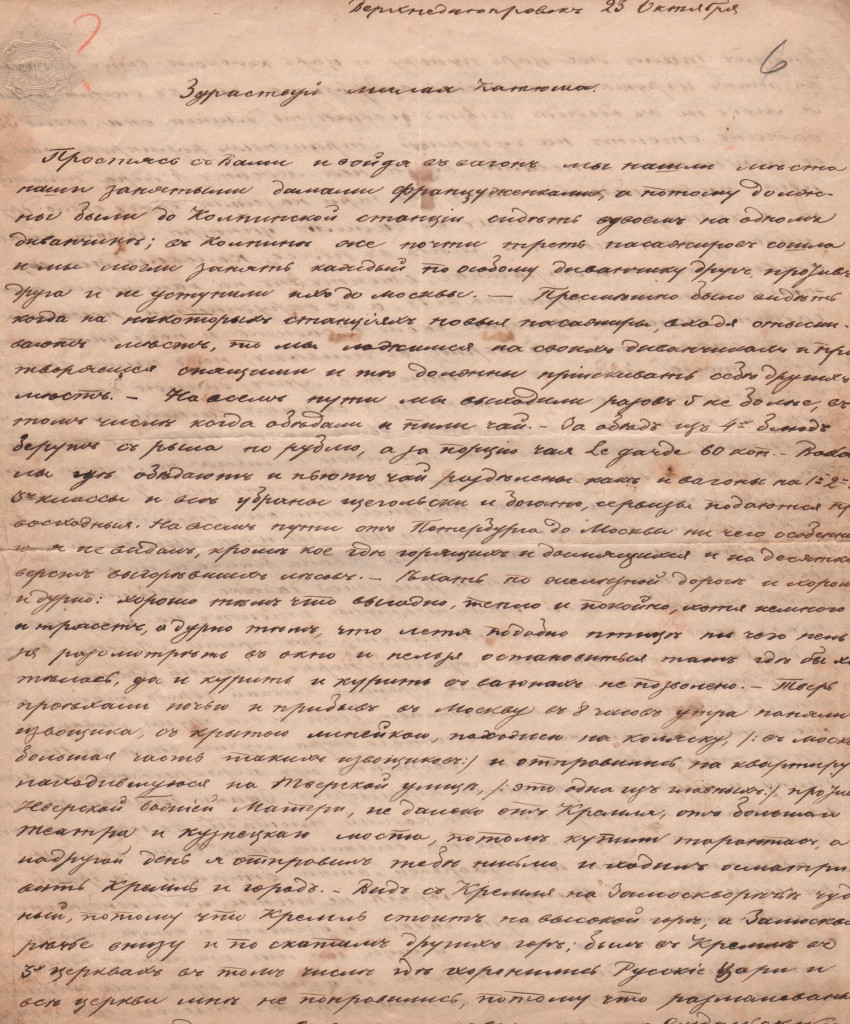 Верхнеднепровск 23 Октября
6
Здраствуй милая Катюша.
Простясь съ Вами и войдя въ вагонъ мы нашли мѣста
наши занятыми дамами француженками, а потому долж-
ны были до Колпинской станціи сидѣть вдвоемъ на одномъ
диванчикѣ; въ Колпинѣ же почти треть пасажировъ сошла
и мы могли занять каждый по особому диванчику другъ противъ
друга и не уступили ихъ до Москвы. — Пресмѣшно было видѣть
когда на нѣкоторыхъ станціяхъ новыя пасажиры, входя отыски-
ваютъ мѣстъ, то мы ложимся на своихъ диванчикахъ и при
творяемся спящими и тѣ должны пріискивать себѣ другихъ
мѣстъ. — На всемъ пути мы выходили разовъ 5 не болѣе, въ
томъ числѣ когда обѣдали и пили чай. — За обѣдъ изъ 4хъ блюдъ
берутъ съ рыла по рублю, а за порцію чая 60 коп. — Вокза
лы гдѣ обѣдаютъ и пьютъ чай раздѣлены какъ и вагоны на 1й 2й
3й классы и всѣ убраны щегольски и богато, сервизы подаются пре
восходныя. На всемъ пути отъ Петербурга до Москвы ни чего особенна
го я не видалъ, кромѣ кое гдѣ горящихъ и дымящихся и на десятки
верстъ выгорѣвшихъ лѣсовъ. — Ѣхать по желѣзной дорогѣ и хорошо
и дурно: хорошо тѣмъ что выгодно, тепло и покойно, хотя немного
и трясетъ, а дурно тѣмъ, что летя подобно птицѣ ни чего нель
зя разсмотрѣть въ окно и нельзя остановиться тамъ гдѣ бы хо
тѣлось, да и курить и курить въ вагонахъ не позволено. — Тверь
проѣхали ночью и прибывъ въ Москву въ 8 часовъ утра наняли
извощика, съ крытою линейкою, походись на коляску, /: въ Москвѣ
большая часть такихъ извощиковъ :/ и отправились на квартиру
находившуюся на Тверской улицѣ, /: это одна изъ главныхъ :/ противъ
Иверской Божіей Матери, не далеко отъ Кремля, отъ большаго
театра и кузнецкаго моста, потомъ купили тарантасъ, а
на другой день я отправилъ тебѣ письмо и ходилъ осматри
вать Кремль и городъ. — Видъ съ Кремля на Замоскворѣчье чуд
ный, потому что Кремль стоитъ на высокой горѣ, а Замоскво
рѣчье внизу и по скатамъ другихъ горъ; былъ въ Кремлѣ въ
3хъ церквахъ въ томъ числѣ гдѣ хоронились Русскіе Цари и
всѣ церкви мнѣ не понравились, потому что размалеваны